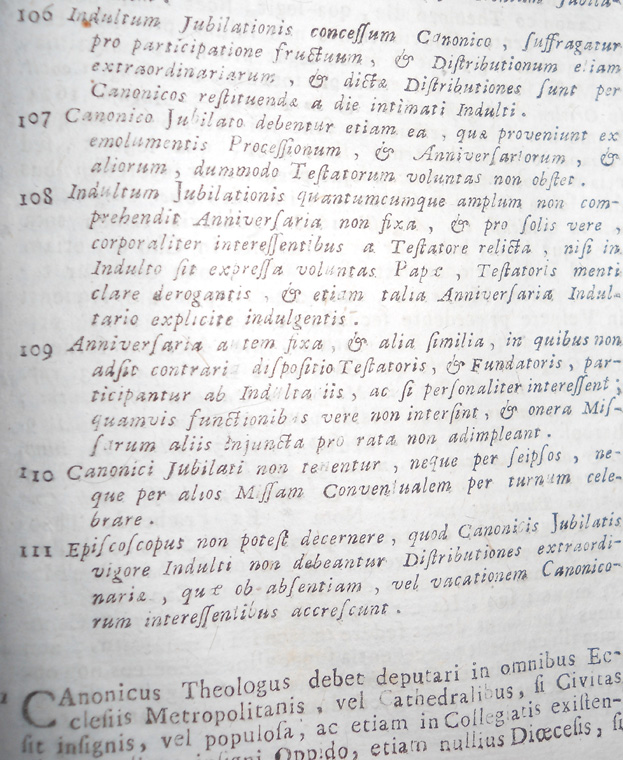 106 Indultum Jubilationis conceſſum Canonico, ſuffragatur
pro participatione fructuum, & Diſtributionum etiam
extraordinariarum, & dictæ Diſtributiones ſunt per
Canonicos reſtituendæ a die intimati Indulti.
107 Canonico Jubilato debentur etiam ea, quæ proveniunt ex
emolumentis Proceſſionum, & Anniverſariorum, &
aliorum, dummodo Teſtatorum voluntas non obſtet.
108 Indultum Jubilationis quantumcumque amplum non com-
prehendit Anniverſaria non fixa, & pro ſolis vere,
corporaliter intereſſentibus a Teſtatore relicta, niſi in
Indulto ſit expreſſa voluntas Papæ, Teſtatoris menti
clare derogantis, & etiam talia Anniverſaria Indul-
tario explicite indulgentis.
109 Anniverſaria autem fixa, & alia ſimilia, in quibus non
adſit contraria diſpoſitio Teſtatoris, & Fundatoris, par-
ticipantur ab Indultariis, ac ſi perſonaliter intereſſent;
quamvis functionibus vere non interſint, & onera Miſ-
ſarum aliis injuncta pro rata non adimpleant.
110 Canonici Jubilati non tenentur, neque per ſeipſos, ne-
que per alios Miſſam Conventualem per turnum cele-
brare.
111 Epiſcoſcopus non poteſt decernere, quod Canonicis Jubilatis
vigore Indulti non debeantur Diſtributiones extraordi-
nariæ, quæ ob abſentiam, vel vacationem Canonico-
rum intereſſentibus accreſcunt.
1 CAnonicus Theologus debet deputari in omnibus Ec-
cleſiis Metropolitanis, vel Cathedralibus, ſi Civitas
ſit inſignis, vel populoſa; ac etiam in Collegiatis exiſten-
Oppido, etiam nullius Diœceſis, ſi